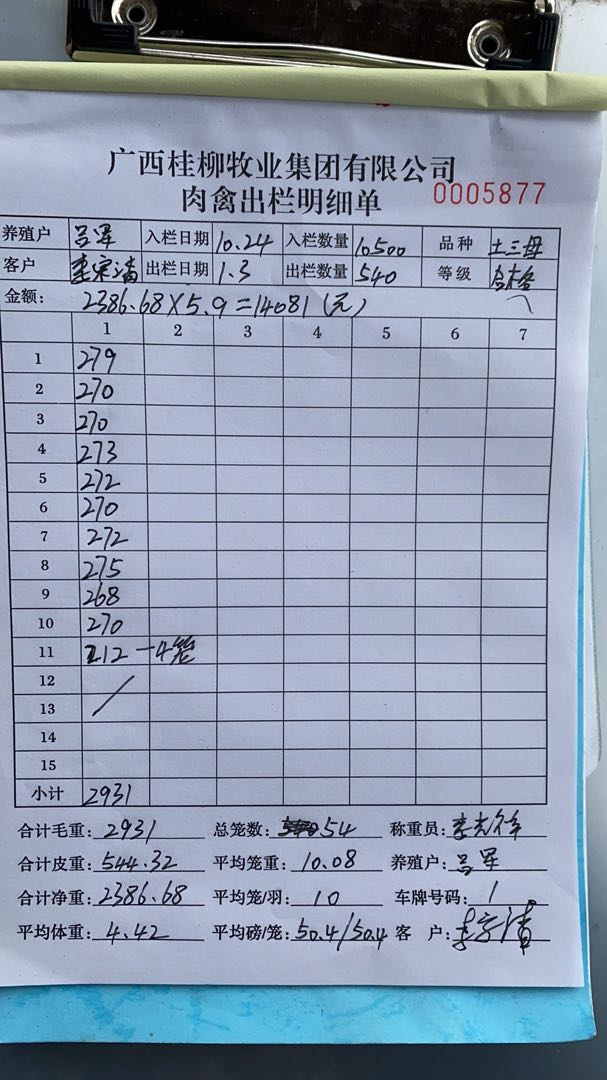 广西桂柳牧业集团有限公司
肉禽出栏明细单 0005877
养殖户 吕军 入栏日期 10.24 入栏数量 10500 品种 土三母
客户 李宗清 出栏日期 1.3 出栏数量 540 等级 合格
金额: 2386.68×5.9=14081(元)
1 2 3 4 5 6 7
1 279
2 270
3 270
4 273
5 272
6 270
7 272
8 275
9 268
10 270
11 212 -4笼
12
13
14
15
小计 2931
合计毛重: 2931 总笼数: 54 称重员:
合计皮重: 544.32 平均笼重: 10.08 养殖户: 吕军
合计净重: 2386.68 平均笼/羽: 10 车牌号码: 1
平均体重: 4.42 平均磅/笼: 50.4/50.4 客 户: 李宗清